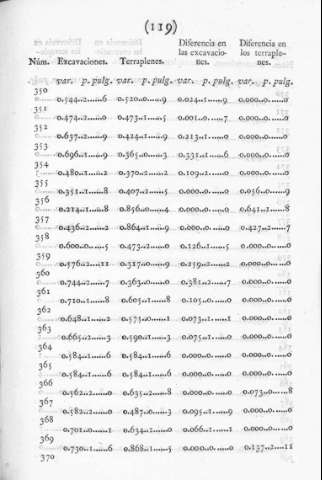 (119)
Núm. Excavaciones. Terraplenes. Diferencia en las excavaciones. Diferencia en los terraplenes.
var. p. pulg. var. p. pulg. var. p. pulg. var. p. pulg.
350
0.544..2......6 0.520..0......9 0.024..1......9 0.000..0......0
351
0.474..2......0 0.473..1......5 0.001..0......7 0.000..0......0
352
0.637..2......9 0.424..1......9 0.213..1......0 0.000..0......0
353
0.696..1......9 0.365..0......3 0.331..1......6 0.000..0......0
354
0.480..1......2 0.370..2......2 0.109..1......0 0.000..0......0
355
0.351..1......8 0.407..2......5 0.000..0......0 0.056..0......9
356
0.214..1......8 0.856..0......4 0.000..0......0 0.641..1......8
357
0.436..2......2 0.864..1......9 0.000..0......0 0.427..2......7
358
0.600..0......5 0.473..2......0 0.126..1......5 0.000..0......0
359
0.576..2......11 0.317..0......9 0.259..2......2 0.000..0......0
360
0.744..2......7 0.363..0......0 0.381..2......7 0.000..0......0
361
0.710..1......8 0.605..1......8 0.105..0......0 0.000..0......0
362
0.648..1......2 0.575..0......1 0.073..1......1 0.000..0......0
363
0.665..2......3 0.590..1......3 0.075..1......0 0.000..0......0
364
0.584..1......6 0.584..1......6 0.000..0......0 0.000..0......0
365
0.584..1......6 0.584..1......6 0.000..0......0 0.000..0......0
366
0.562..2......0 0.635..2......8 0.000..0......0 0.073..0......8
367
0.582..2......0 0.487..0......3 0.095..1......9 0.000..0......0
368
0.701..0......1 0.634..1......0 0.066..1......1 0.000..0......0
369
0.730..1......6 0.868..1......5 0.000..0......0 0.137..2......11
370